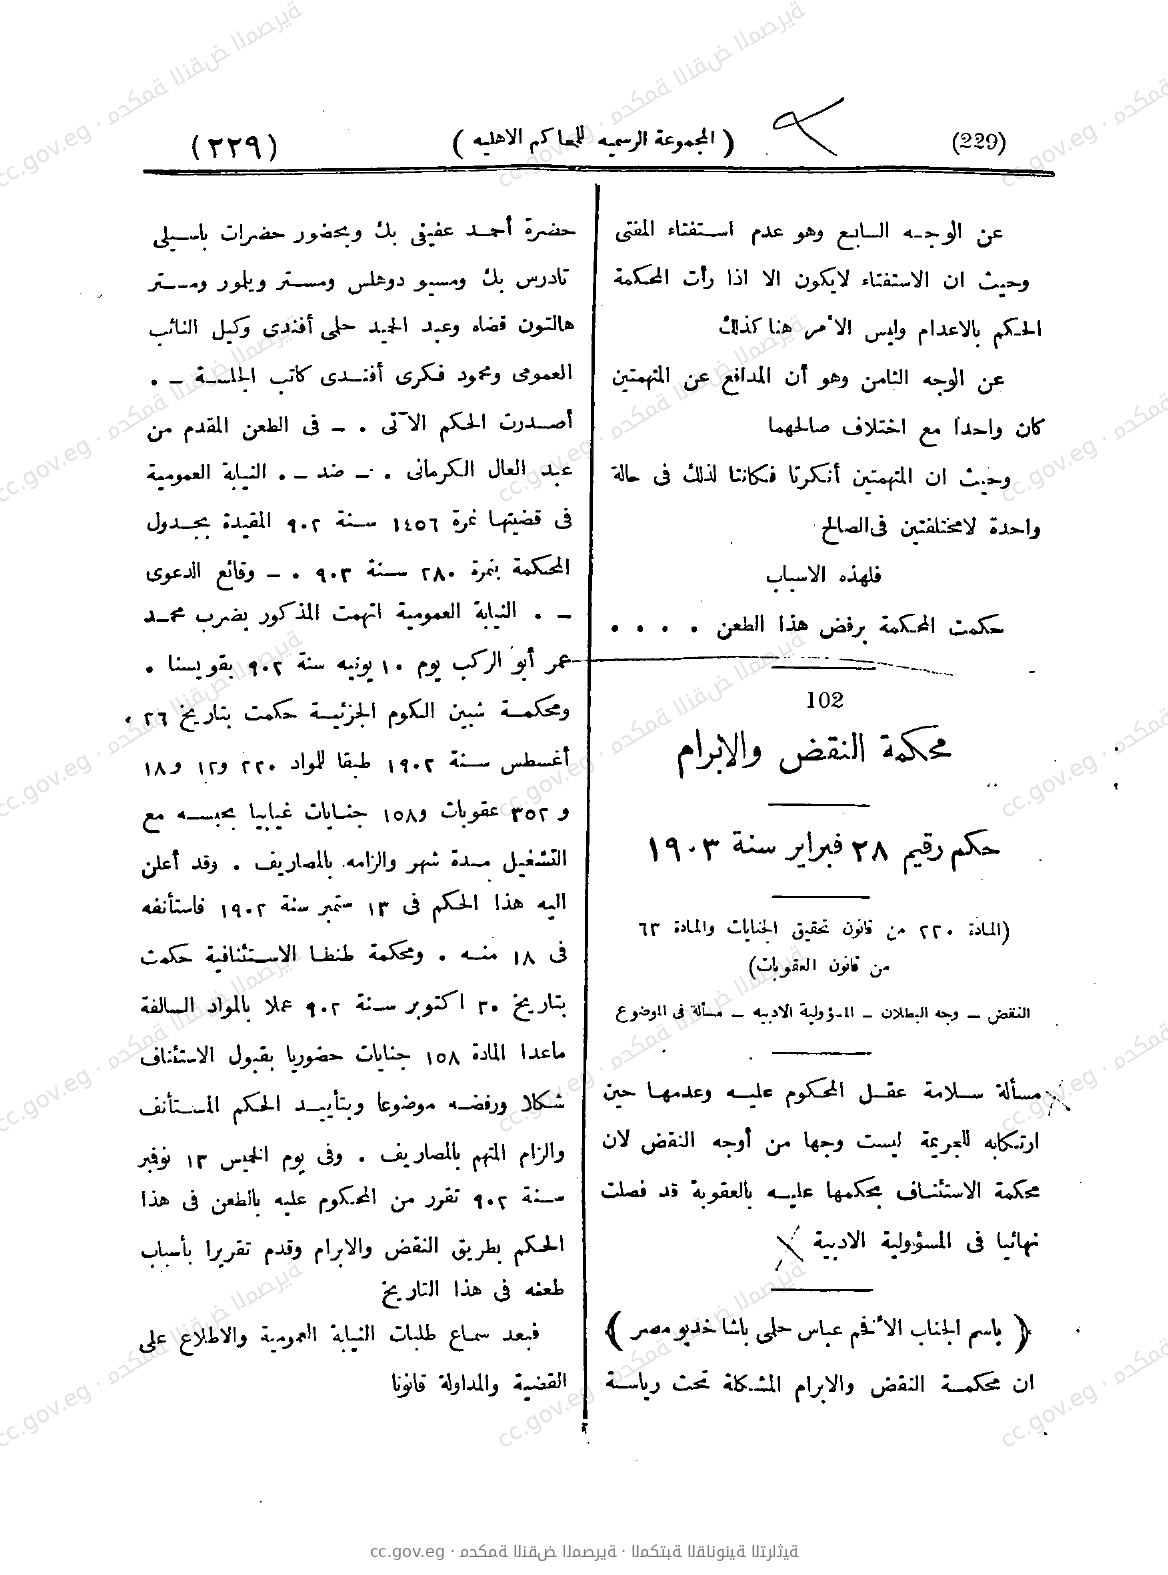 (229)
( المجموعة الرسميه للمحاكم الاهليه )
(٢٢٩)
عن الوجه السابع وهو عدم استفتاء المفتى
وحيث ان الاستفتاء لايكون الا اذا رأت المحكمة
الحكم بالاعدام وليس الأمر هنا كذلك
عن الوجه الثامن وهو أن المدافع عن المتهمتين
كان واحداً مع اختلاف صالحهما
وحيث ان المتهمتين أنكرتا فكانتا لذلك فى حالة
واحدة لامختلفتين فى الصالح
فلهذه الاسباب
حكمت المحكمة برفض هذا الطعن . . . .
102
محكمة النقض والابرام
حكم رقيم ٢٨ فبراير سنة ١٩٠٣
(المادة ٢٢٠ من قانون تحقيق الجنايات والمادة ٦٣
من قانون العقوبات)
النقض – وجه البطلان – المسؤولية الادبيه – مسألة فى الموضوع
مسألة سلامة عقل المحكوم عليه وعدمها حين
ارتكابه للجريمة ليست وجها من أوجه النقض لان
محكمة الاستئناف بحكمها عليه بالعقوبة قد فصلت
نهائيا فى المسؤولية الادبية
( باسم الجناب الأفخم عباس حلمى باشا خديو مصر )
ان محكمة النقض والابرام المشكلة تحت رياسة
حضرة أحمد عفيفى بك وبحضور حضرات باسيلى
تادرس بك ومسيو دوهلس ومستر ويلمور ومستر
هالتون قضاه وعبد المجيد حلمى أفندى وكيل النائب
العمومى ومحمود فكرى أفندى كاتب الجلسة – .
أصدرت الحكم الآتى . – فى الطعن المقدم من
عبد العال الكرمانى . – ضد – . النيابة العمومية
فى قضيتها نمرة ١٤٥٦ سنة ٩٠٢ المقيدة بجدول
المحكمة بنمرة ٢٨٠ سنة ٩٠٣ . – وقائع الدعوى
– . النيابة العمومية اتهمت المذكور بضرب محمد
عمر أبو الركب يوم ١٠ يونيه سنة ٩٠٢ بقويسنا .
ومحكمة شبين الكوم الجزئية حكمت بتاريخ ٢٦
أغسطس سنة ١٩٠٢ طبقا للمواد ٢٢٠ و١٢ و١٨
و ٣٥٢ عقوبات و١٥٨ جنايات غيابيا بحبسه مع
التشغيل مدة شهر والزامه بالمصاريف . وقد أعلن
اليه هذا الحكم فى ١٣ ستمبر سنة ١٩٠٢ فاستأنفه
فى ١٨ منه . ومحكمة طنطا الاستئنافية حكمت
بتاريخ ٣٠ اكتوبر سنة ٩٠٢ عملا بالمواد السالفة
ماعدا المادة ١٥٨ جنايات حضوريا بقبول الاستئناف
شكلا ورفضه موضوعا وبتأييد الحكم المستأنف
والزام المتهم بالمصاريف . وفى يوم الخميس ١٣ نوفمبر
سنة ٩٠٢ تقرر من المحكوم عليه بالطعن فى هذا
الحكم بطريق النقض والابرام وقدم تقريرا بأسباب
طعنه فى هذا التاريخ
فبعد سماع طلبات النيابة العمومية والاطلاع على
القضية والمداولة قانونا
cc.gov.eg · محكمة النقض المصرية · المكتبة القانونية التراثية